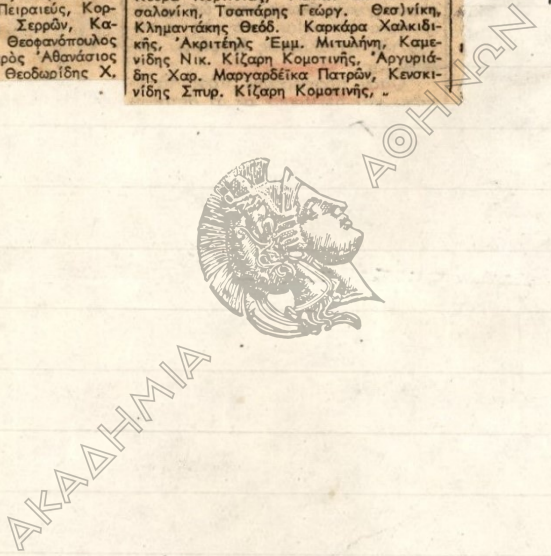 Πειραιεύς, Κορ-
Σερρῶν, Κα-
Θεοφανόπουλος
ρὸς Ἀθανάσιος
Θεοδωρίδης Χ.
σαλονίκη, Τσαπάρης Γεώργ. Θεσ)νίκη,
Κλημαντάκης Θεόδ. Καρκάρα Χαλκιδι-
κῆς, Ἀκριτέηλς Ἐμμ. Μιτυλήνη, Καμε-
νίδης Νικ. Κίζαρη Κομοτινῆς, Ἀργυριά-
δης Χαρ. Μαργαρδέϊκα Πατρῶν, Κενσκι-
νίδης Σπυρ. Κίζαρη Κομοτινῆς, „
ΑΚΑΔΗΜΙΑ
ΑΘΗΝΩΝ